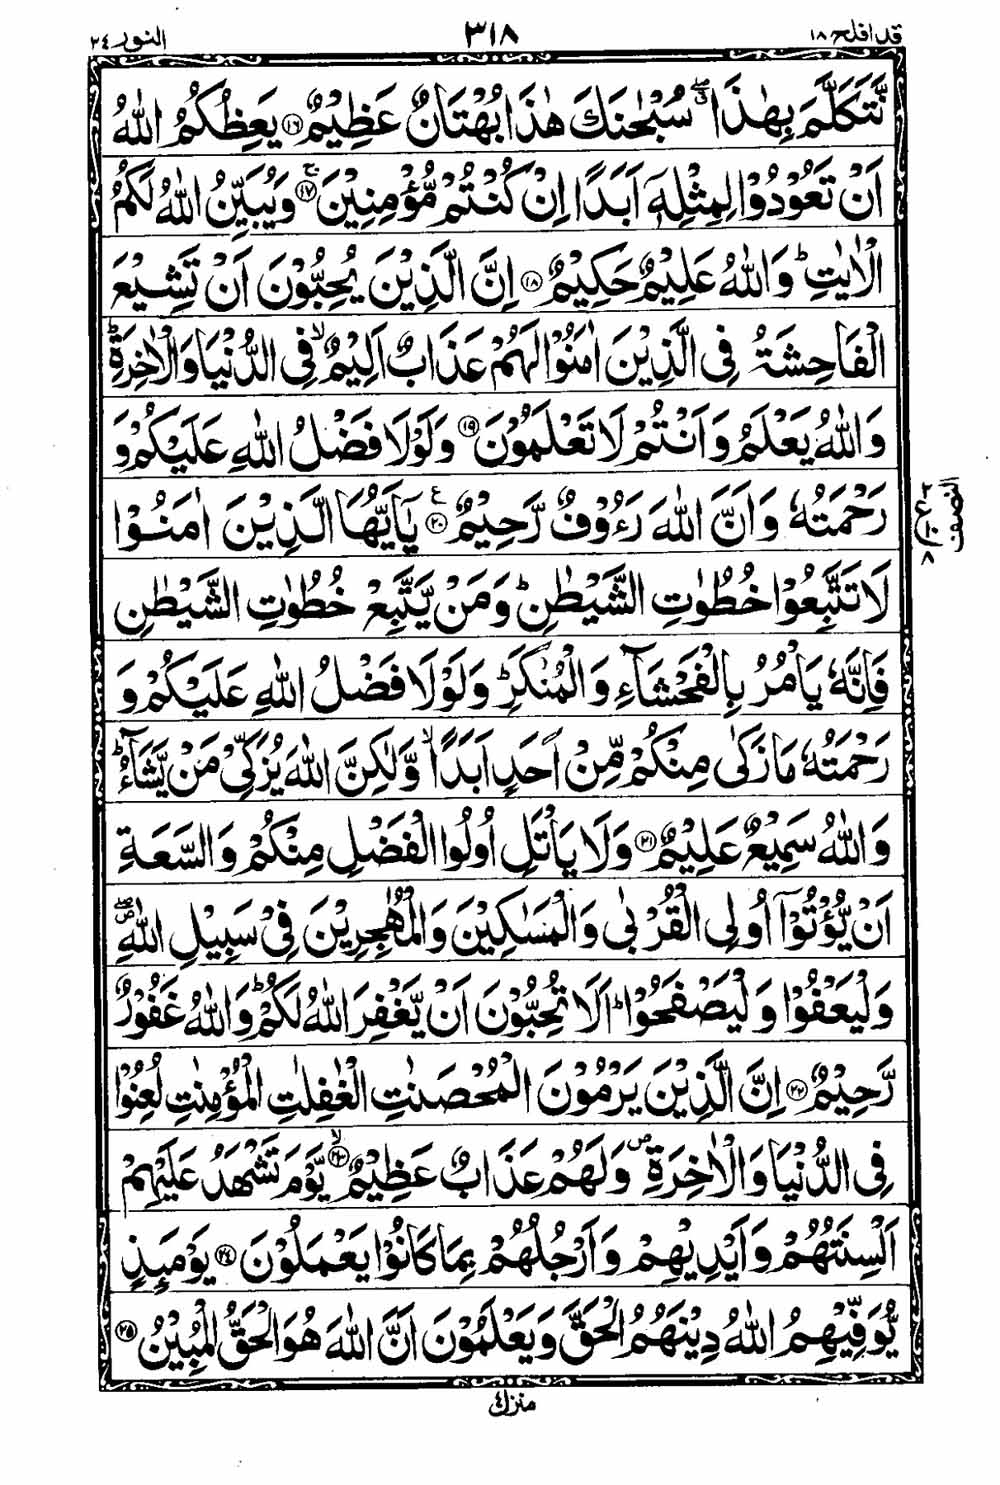 قد افلح ١٨
٣١٨
النور ٢٤
نَّتَكَلَّمَ بِهٰذَا ۖ سُبْحٰنَكَ هٰذَا بُهْتَانٌ عَظِيْمٌ ﴿١٦﴾ يَعِظُكُمُ اللّٰهُ
اَنْ تَعُوْدُوْا لِمِثْلِهٖٓ اَبَدًا اِنْ كُنْتُمْ مُّؤْمِنِيْنَ ۚ ﴿١٧﴾ وَيُبَيِّنُ اللّٰهُ لَكُمُ
الْاٰيٰتِ ؕ وَاللّٰهُ عَلِيْمٌ حَكِيْمٌ ﴿١٨﴾ اِنَّ الَّذِيْنَ يُحِبُّوْنَ اَنْ تَشِيْعَ
الْفَاحِشَةُ فِي الَّذِيْنَ اٰمَنُوْا لَهُمْ عَذَابٌ اَلِيْمٌ ۙ فِي الدُّنْيَا وَالْاٰخِرَةِ ؕ
وَاللّٰهُ يَعْلَمُ وَاَنْتُمْ لَا تَعْلَمُوْنَ ﴿١٩﴾ وَلَوْلَا فَضْلُ اللّٰهِ عَلَيْكُمْ وَ
رَحْمَتُهٗ وَاَنَّ اللّٰهَ رَءُوْفٌ رَّحِيْمٌ ﴿٢٠﴾ ع يٰۤاَيُّهَا الَّذِيْنَ اٰمَنُوْا
لَا تَتَّبِعُوْا خُطُوٰتِ الشَّيْطٰنِ ؕ وَمَنْ يَّتَّبِعْ خُطُوٰتِ الشَّيْطٰنِ
فَاِنَّهٗ يَاْمُرُ بِالْفَحْشَآءِ وَالْمُنْكَرِ ؕ وَلَوْلَا فَضْلُ اللّٰهِ عَلَيْكُمْ وَ
رَحْمَتُهٗ مَا زَكٰى مِنْكُمْ مِّنْ اَحَدٍ اَبَدًا ۙ وَّلٰكِنَّ اللّٰهَ يُزَكِّيْ مَنْ يَّشَآءُ ؕ
وَاللّٰهُ سَمِيْعٌ عَلِيْمٌ ﴿٢١﴾ وَلَا يَاْتَلِ اُولُوا الْفَضْلِ مِنْكُمْ وَالسَّعَةِ
اَنْ يُّؤْتُوْۤا اُولِي الْقُرْبٰى وَالْمَسٰكِيْنَ وَالْمُهٰجِرِيْنَ فِيْ سَبِيْلِ اللّٰهِ ۖ
وَلْيَعْفُوْا وَلْيَصْفَحُوْا ؕ اَلَا تُحِبُّوْنَ اَنْ يَّغْفِرَ اللّٰهُ لَكُمْ ؕ وَاللّٰهُ غَفُوْرٌ
رَّحِيْمٌ ﴿٢٢﴾ اِنَّ الَّذِيْنَ يَرْمُوْنَ الْمُحْصَنٰتِ الْغٰفِلٰتِ الْمُؤْمِنٰتِ لُعِنُوْا
فِي الدُّنْيَا وَالْاٰخِرَةِ ۪ وَلَهُمْ عَذَابٌ عَظِيْمٌ ۙ ﴿٢٣﴾ يَّوْمَ تَشْهَدُ عَلَيْهِمْ
اَلْسِنَتُهُمْ وَاَيْدِيْهِمْ وَاَرْجُلُهُمْ بِمَا كَانُوْا يَعْمَلُوْنَ ﴿٢٤﴾ يَوْمَئِذٍ
يُّوَفِّيْهِمُ اللّٰهُ دِيْنَهُمُ الْحَقَّ وَيَعْلَمُوْنَ اَنَّ اللّٰهَ هُوَ الْحَقُّ الْمُبِيْنُ ﴿٢٥﴾
النصف
ع
٨
منزل ٤